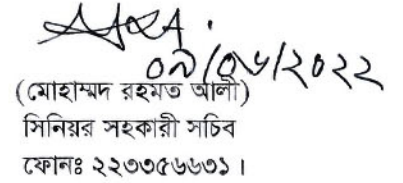 ০৯/০৬/২০২২
(মোহাম্মদ রহমত আলী)
সিনিয়র সহকারী সচিব
ফোনঃ ২২৩৩৫৬৬৩১ ।